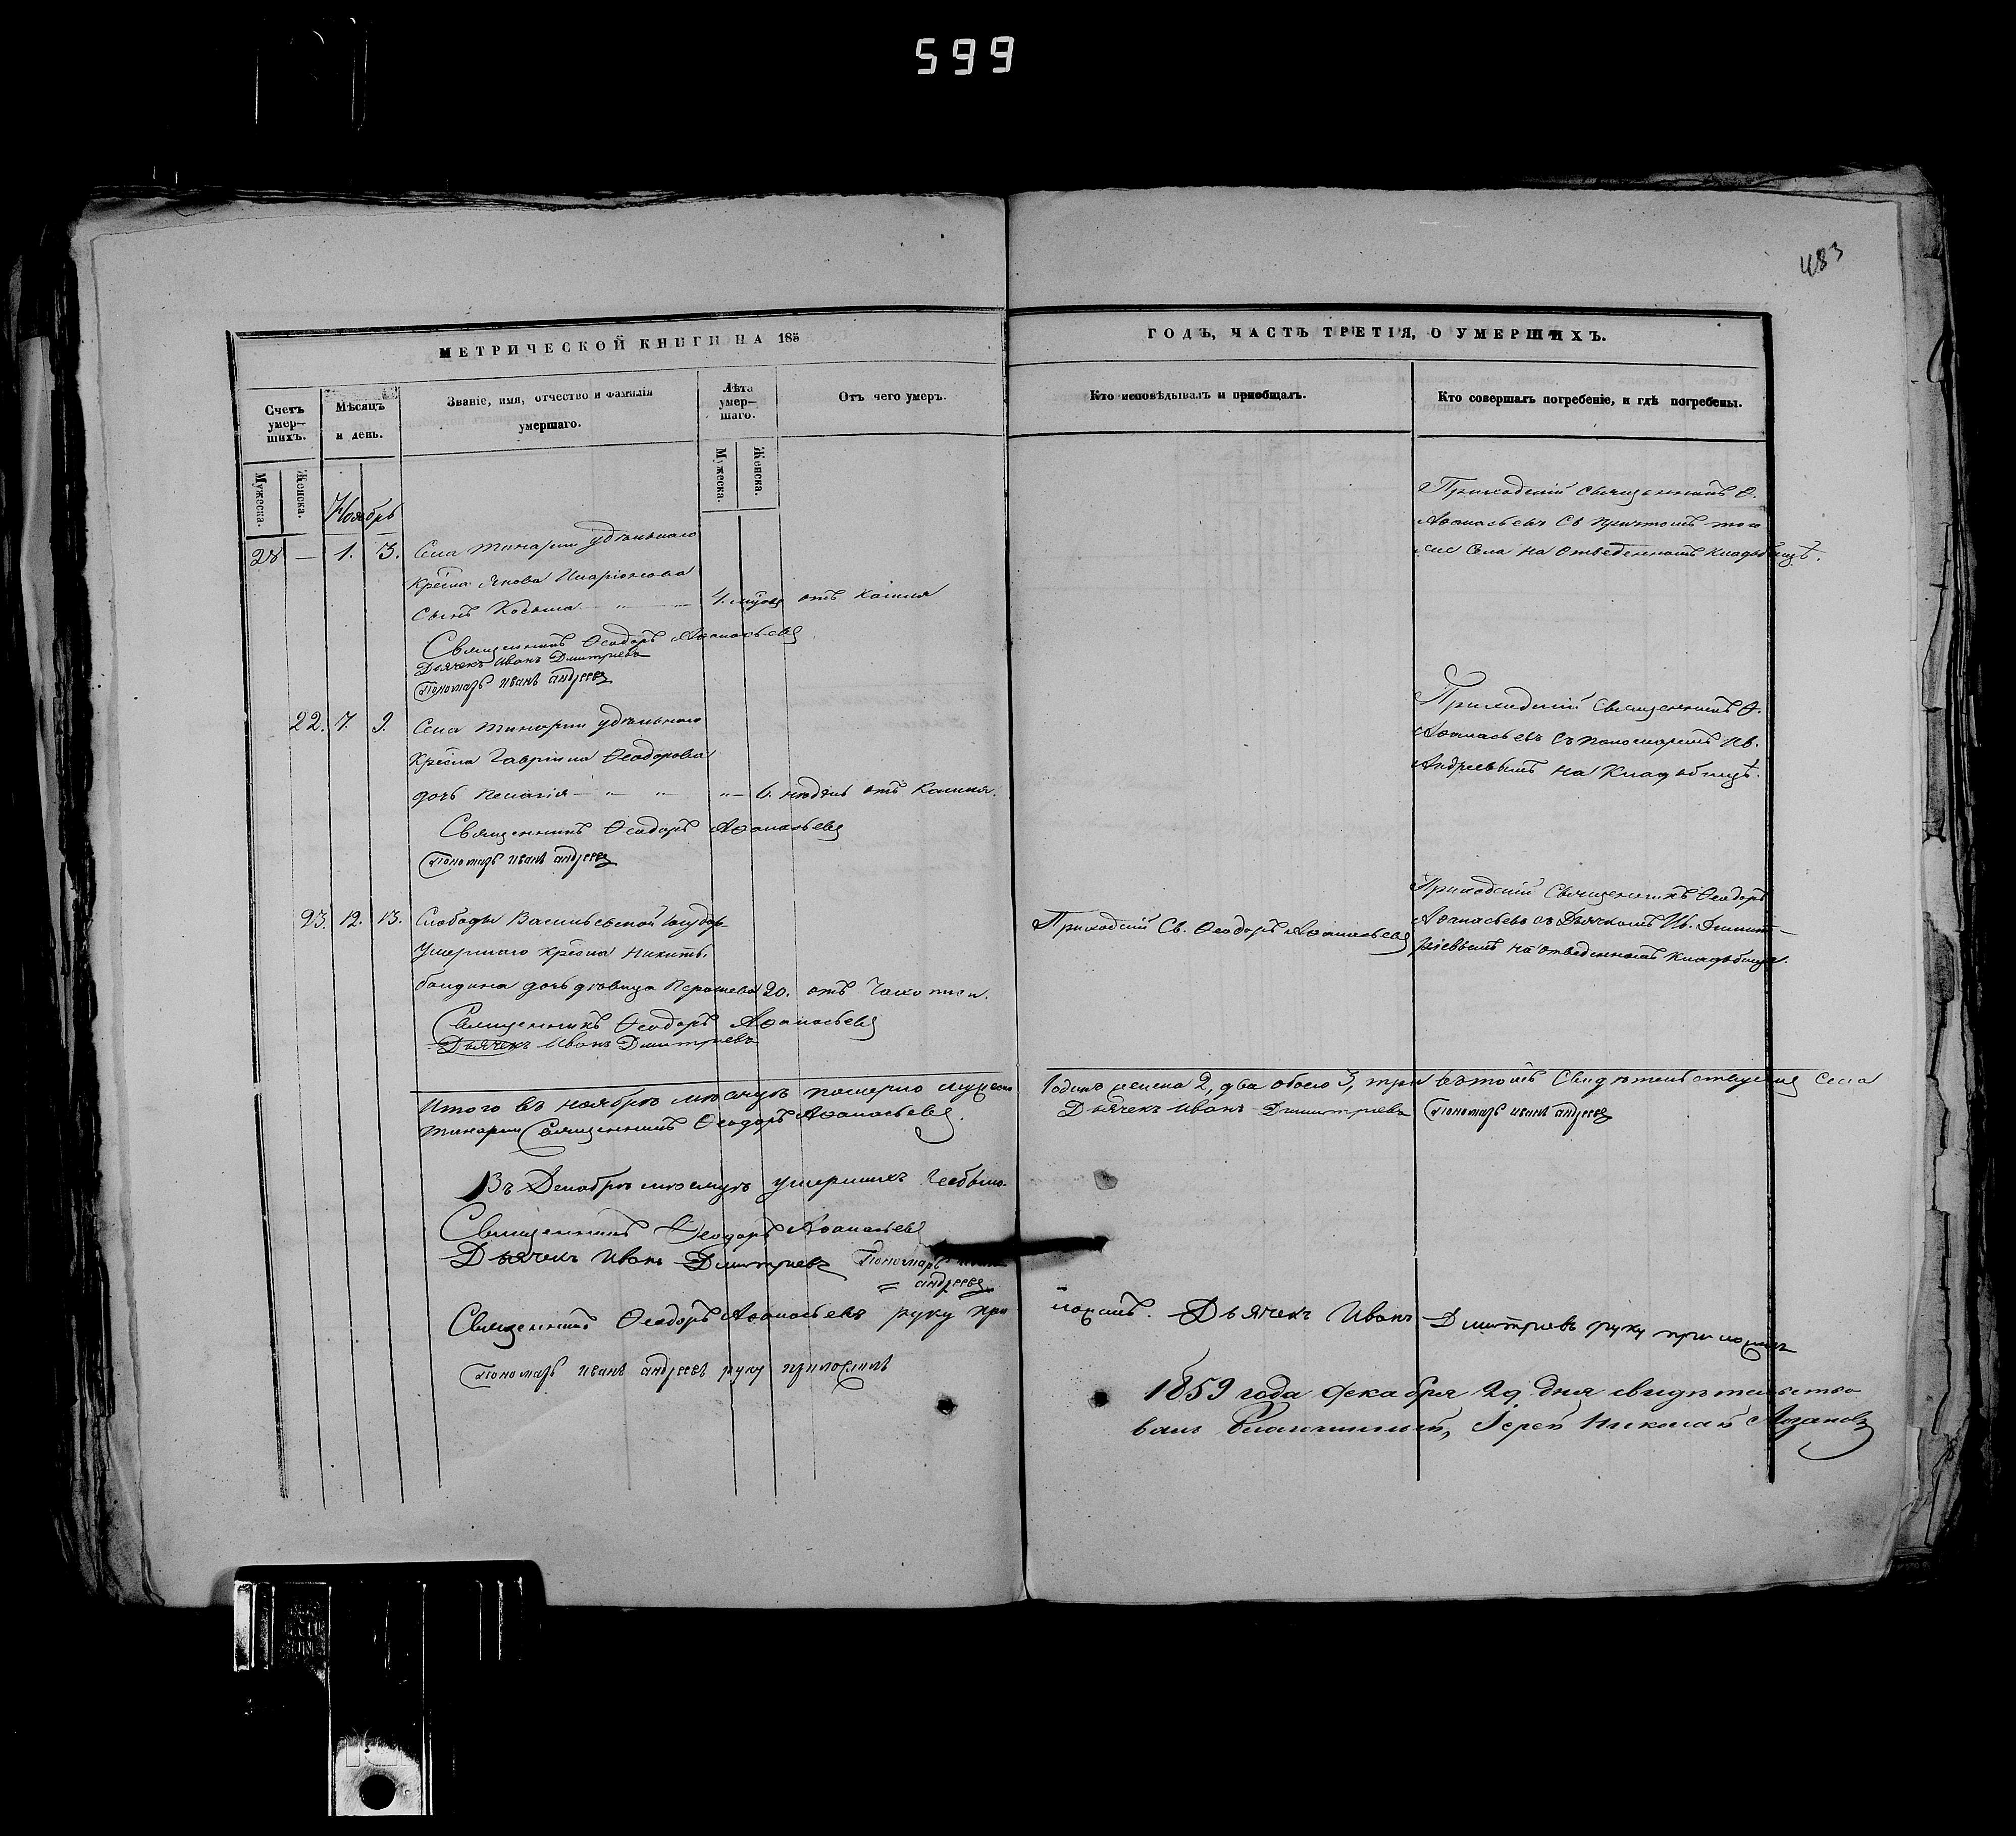 599
483
МЕТРИЧЕСКОЙ КНИГИ НА 185
ГОДЪ, ЧАСТЬ ТРЕТІЯ, О УМЕРШИХЪ.
Счетъ умер-шихъ.
Мѣсяцъ и день.
Званіе, имя, отчество и фамилія умершаго.
Лѣта умер-шаго.
Отъ чего умеръ.
Кто исповѣдывалъ и пріобщалъ.
Кто совершалъ погребеніе, и гдѣ погребены.
Мужеска.
Женска.
Мужеска.
Женска.
Ноябрь
28 — 1. 3. Села Тинарги удѣльнаго
крест. Якова Иларіонова
сынъ Косьма — „ — 4. мѣсяц отъ кашля
Приходскій священникъ Ѳ.
Аѳанасьевъ съ причтомъ того
же села на отведенномъ кладбищѣ.
Священникъ Ѳеодоръ Аѳанасьевъ
Дьячекъ Иванъ Дмитріевъ
Пономарь Иванъ Андреевъ
22. 7. 9. Села Тинарги удѣльнаго
крест. Гавріила Ѳеодорова
дочь Пелагія — „ „ „ — 6. недѣль отъ кашля.
Приходскій священникъ Ѳ.
Аѳанасьевъ съ пономаремъ Ив.
Андреевымъ на кладбищѣ.
Священникъ Ѳеодоръ Аѳанасьевъ
Пономарь Иванъ Андреевъ
23. 12. 13. Слободы Васильевской государ.
умершаго крест. Никиты
дочь дѣвица 20. отъ чахотки.
Приходскій Св. Ѳеодоръ Аѳанасьевъ
Приходскій священникъ Ѳеодоръ
Аѳанасьевъ съ дьячкомъ Ив. Димит-
ріевымъ на отведенномъ кладбищѣ.
Священникъ Ѳеодоръ Аѳанасьевъ
Дьячекъ Иванъ Дмитріевъ
Итого въ ноябрѣ мѣсяцѣ померло мужеска 1 одинъ женска 2, два обоего 3, три въ томъ свидѣтельствуемъ села
Тинарги Священникъ Ѳеодоръ Аѳанасьевъ. Дьячекъ Иванъ Димитріевъ Пономарь Иванъ Андреевъ
Въ Декабрѣ мѣсяцѣ умершихъ небыло.
Священникъ Ѳеодоръ Аѳанасьевъ
Дьячекъ Иванъ Дмитріевъ Пономарь Иванъ
Андреевъ
Священникъ Ѳеодоръ Аѳанасьевъ руку приложилъ. Дьячекъ Иванъ Дмитріевъ руку приложилъ
Пономарь Иванъ Андреевъ руку приложилъ
1859 года декабря 29 дня свидѣтельство-
валъ Благочинный, Іерей Николай